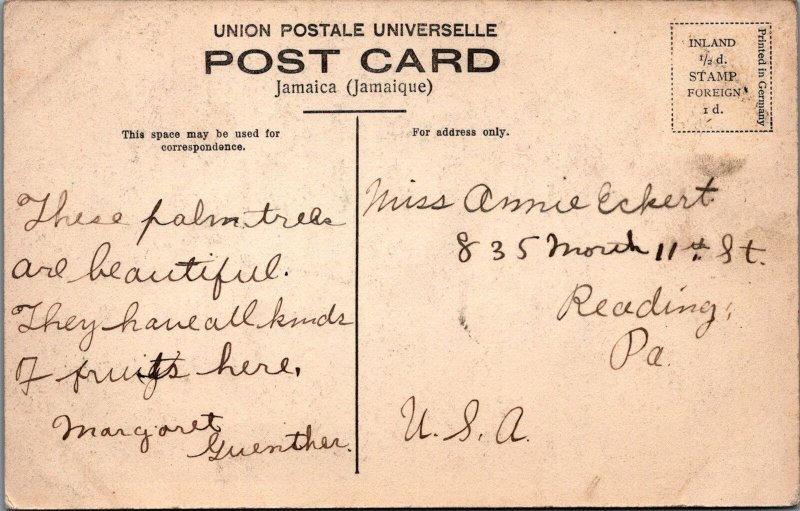 UNION POSTALE UNIVERSELLE
POST CARD
Jamaica (Jamaique)
This space may be used for
correspondence.
For address only.
INLAND
1/2 d.
STAMP
FOREIGN
1 d.
Printed in Germany
These palm trees
are beautiful.
They have all kinds
of fruits here.
Margaret
Guenther.
Miss Annie Eckert
835 North 11th St.
Reading,
Pa.
U.S.A.